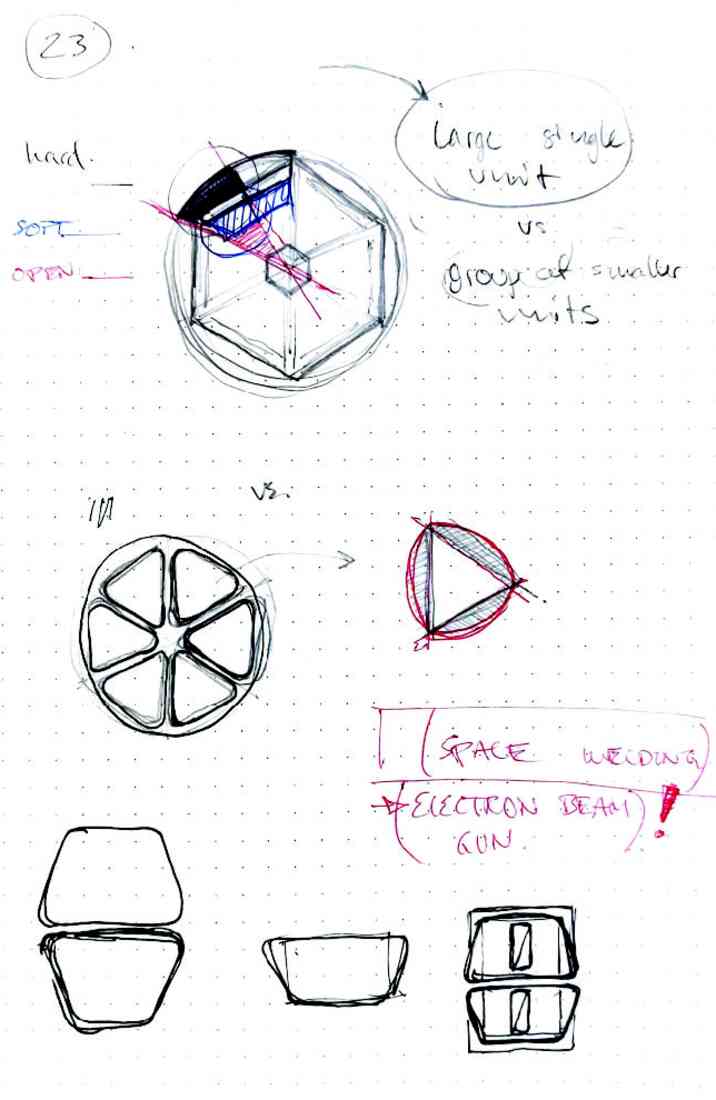 23
hard.
SOFT
OPEN
large single
unit
vs
group of smaller
units
vs.
(SPACE WELDING)
(ELECTRON BEAM) !
GUN.